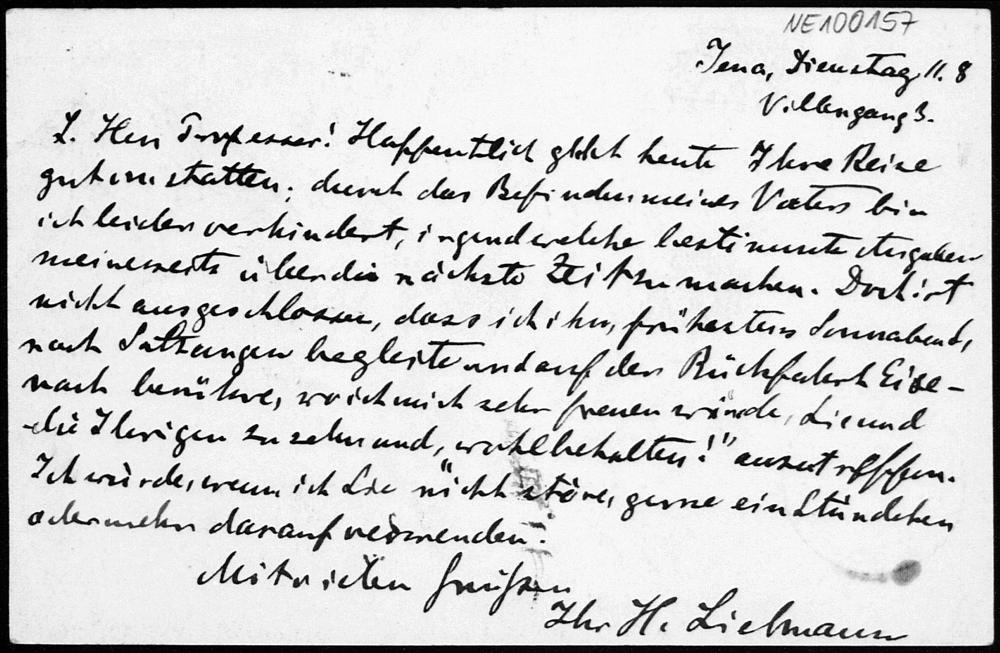 NE100157
Jena, Dienstag, 11. 8
Villengang 3.
L. Herr Professor! Hoffentlich glückt heute Ihre Reise
gut von statten; durch das Befinden meines Vaters bin
ich leider verhindert, irgendwelche bestimmte Angaben
meinerseits über die nächste Zeit zu machen. Doch ist
nicht ausgeschlossen, dass ich ihn, frühestens Sonnabend,
nach Salzungen begleite und auf der Rückfahrt Eise-
nach berühre, wo ich mich sehr freuen würde, Sie und
die Ihrigen zu sehn und „wohlbehalten!" anzutreffen.
Ich würde, wenn ich Sie nicht störe, gerne ein Stündchen
oder mehr darauf verwenden.
Mit vielen Grüßen
Ihr H. Liebmann